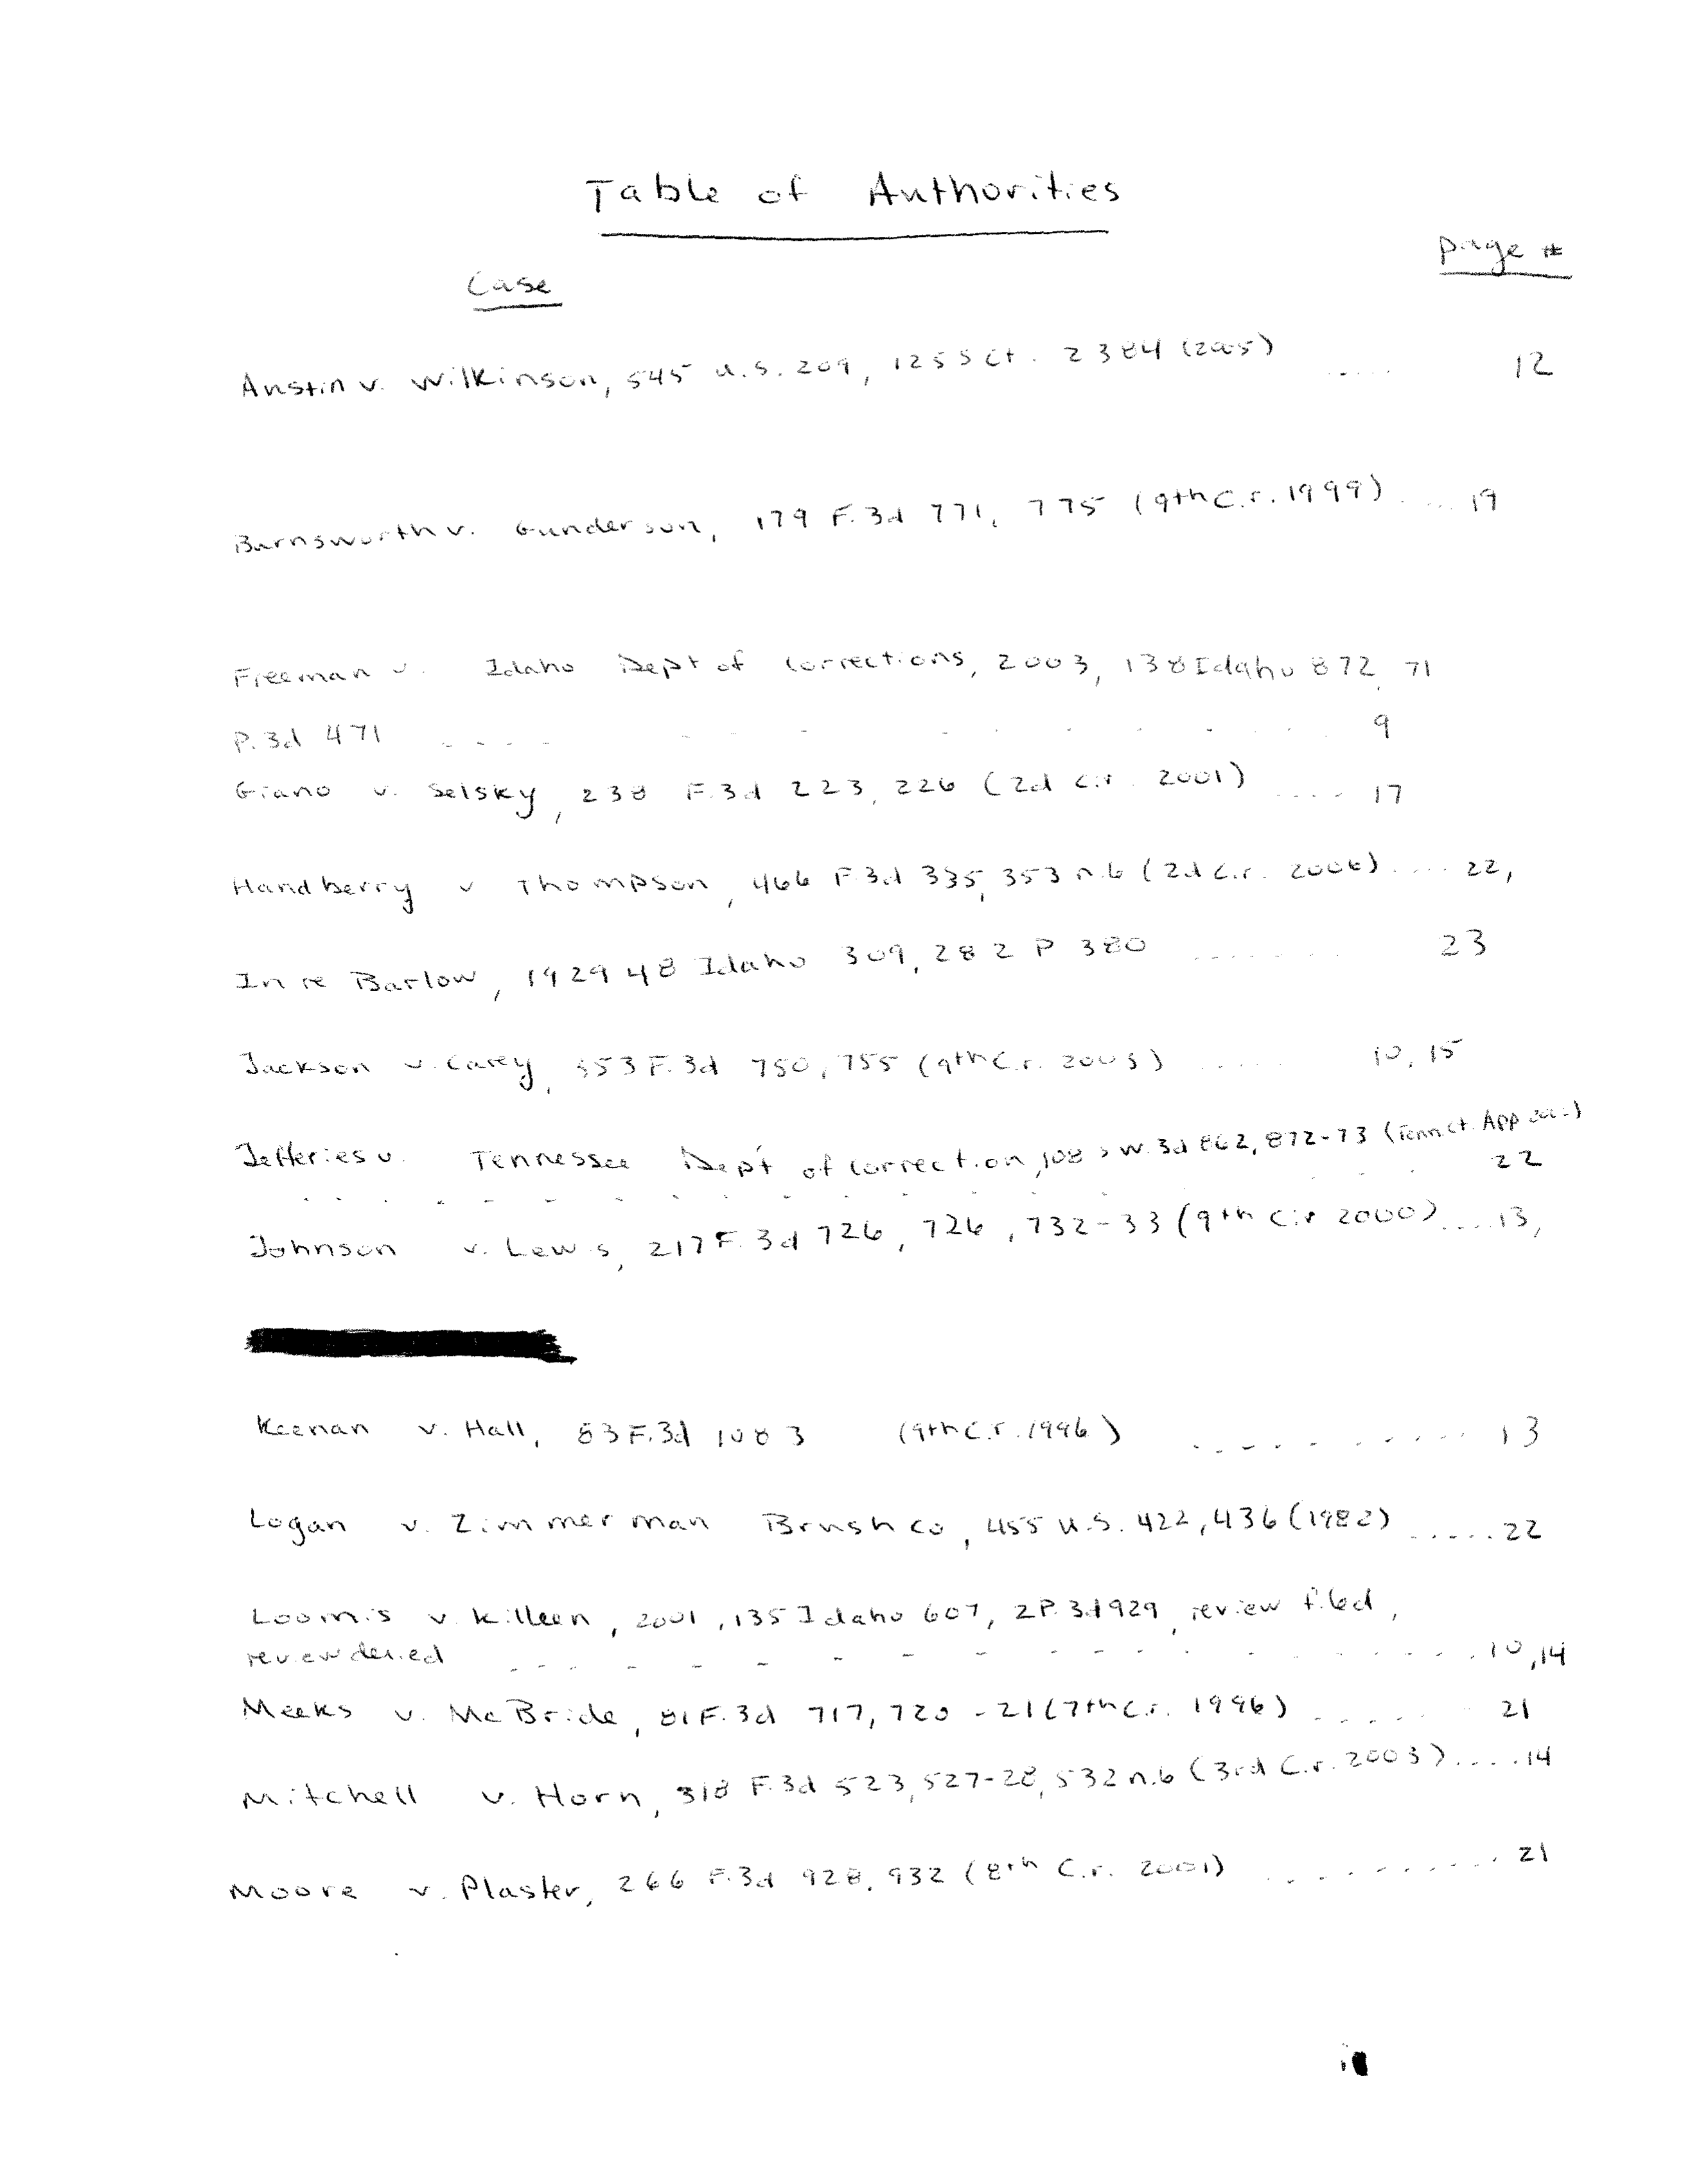 Table of Authorities
page #
Case
Austin v. Wilkinson, 545 U.S. 209, 125 S Ct. 2384 (2005) ..... 12
Barnsworth v. Gunderson, 179 F.3d 771, 775 (9th Cir. 1999) .... 19
Freeman v. Idaho Dept of Corrections, 2003, 138 Idaho 872, 71
P.3d 471 .... 9
Giano v. Selsky, 238 F.3d 223, 226 (2d Cir. 2001) .... 17
Handberry v Thompson, 466 F.3d 335, 353 n.6 (2d Cir. 2006) .... 22,
In re Barlow, 1929 48 Idaho 309, 282 P 380 ....... 23
Jackson v. Carey, 353 F.3d 750, 755 (9th Cir. 2003) ...... 10, 15
Jefferies v. Tennessee Dep't of Correction, 108 S W. 3d 862, 872-73 (Tenn. Ct. App
22
Johnson v. Lewis, 217 F. 3d 726, 726, 732-33 (9th Cir 2000) .... 13,
Keenan v. Hall, 83 F.3d 1083 (9th Cir. 1996) .......... 13
Logan v. Zimmerman Brush Co, 455 U.S. 422, 436 (1982) ..... 22
Loomis v. Killeen, 2001, 135 Idaho 607, 2 P.3d 929, review filed,
review denied .......... 10, 14
Meeks v. McBride, 81 F.3d 717, 720-21 (7th Cir. 1996) ..... 21
Mitchell v. Horn, 318 F.3d 523, 527-28, 532 n.6 (3rd Cir. 2003) .... 14
Moore v. Plaster, 266 F.3d 928, 932 (8th Cir. 2001) ......... 21